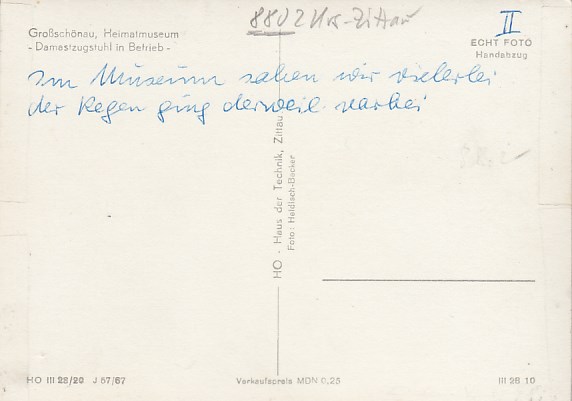 8802 Krs. Zittau
Großschönau, Heimatmuseum
- Damastzugstuhl in Betrieb -
II
ECHT FOTO
Handabzug
Im Museum sahen wir vielerlei
der Regen ging derweil vorbei
HO - Haus der Technik, Zittau
Foto: Heidisch-Becker
HO III 28/20 J 57/67
Verkaufspreis MDN 0,25
III 28 10